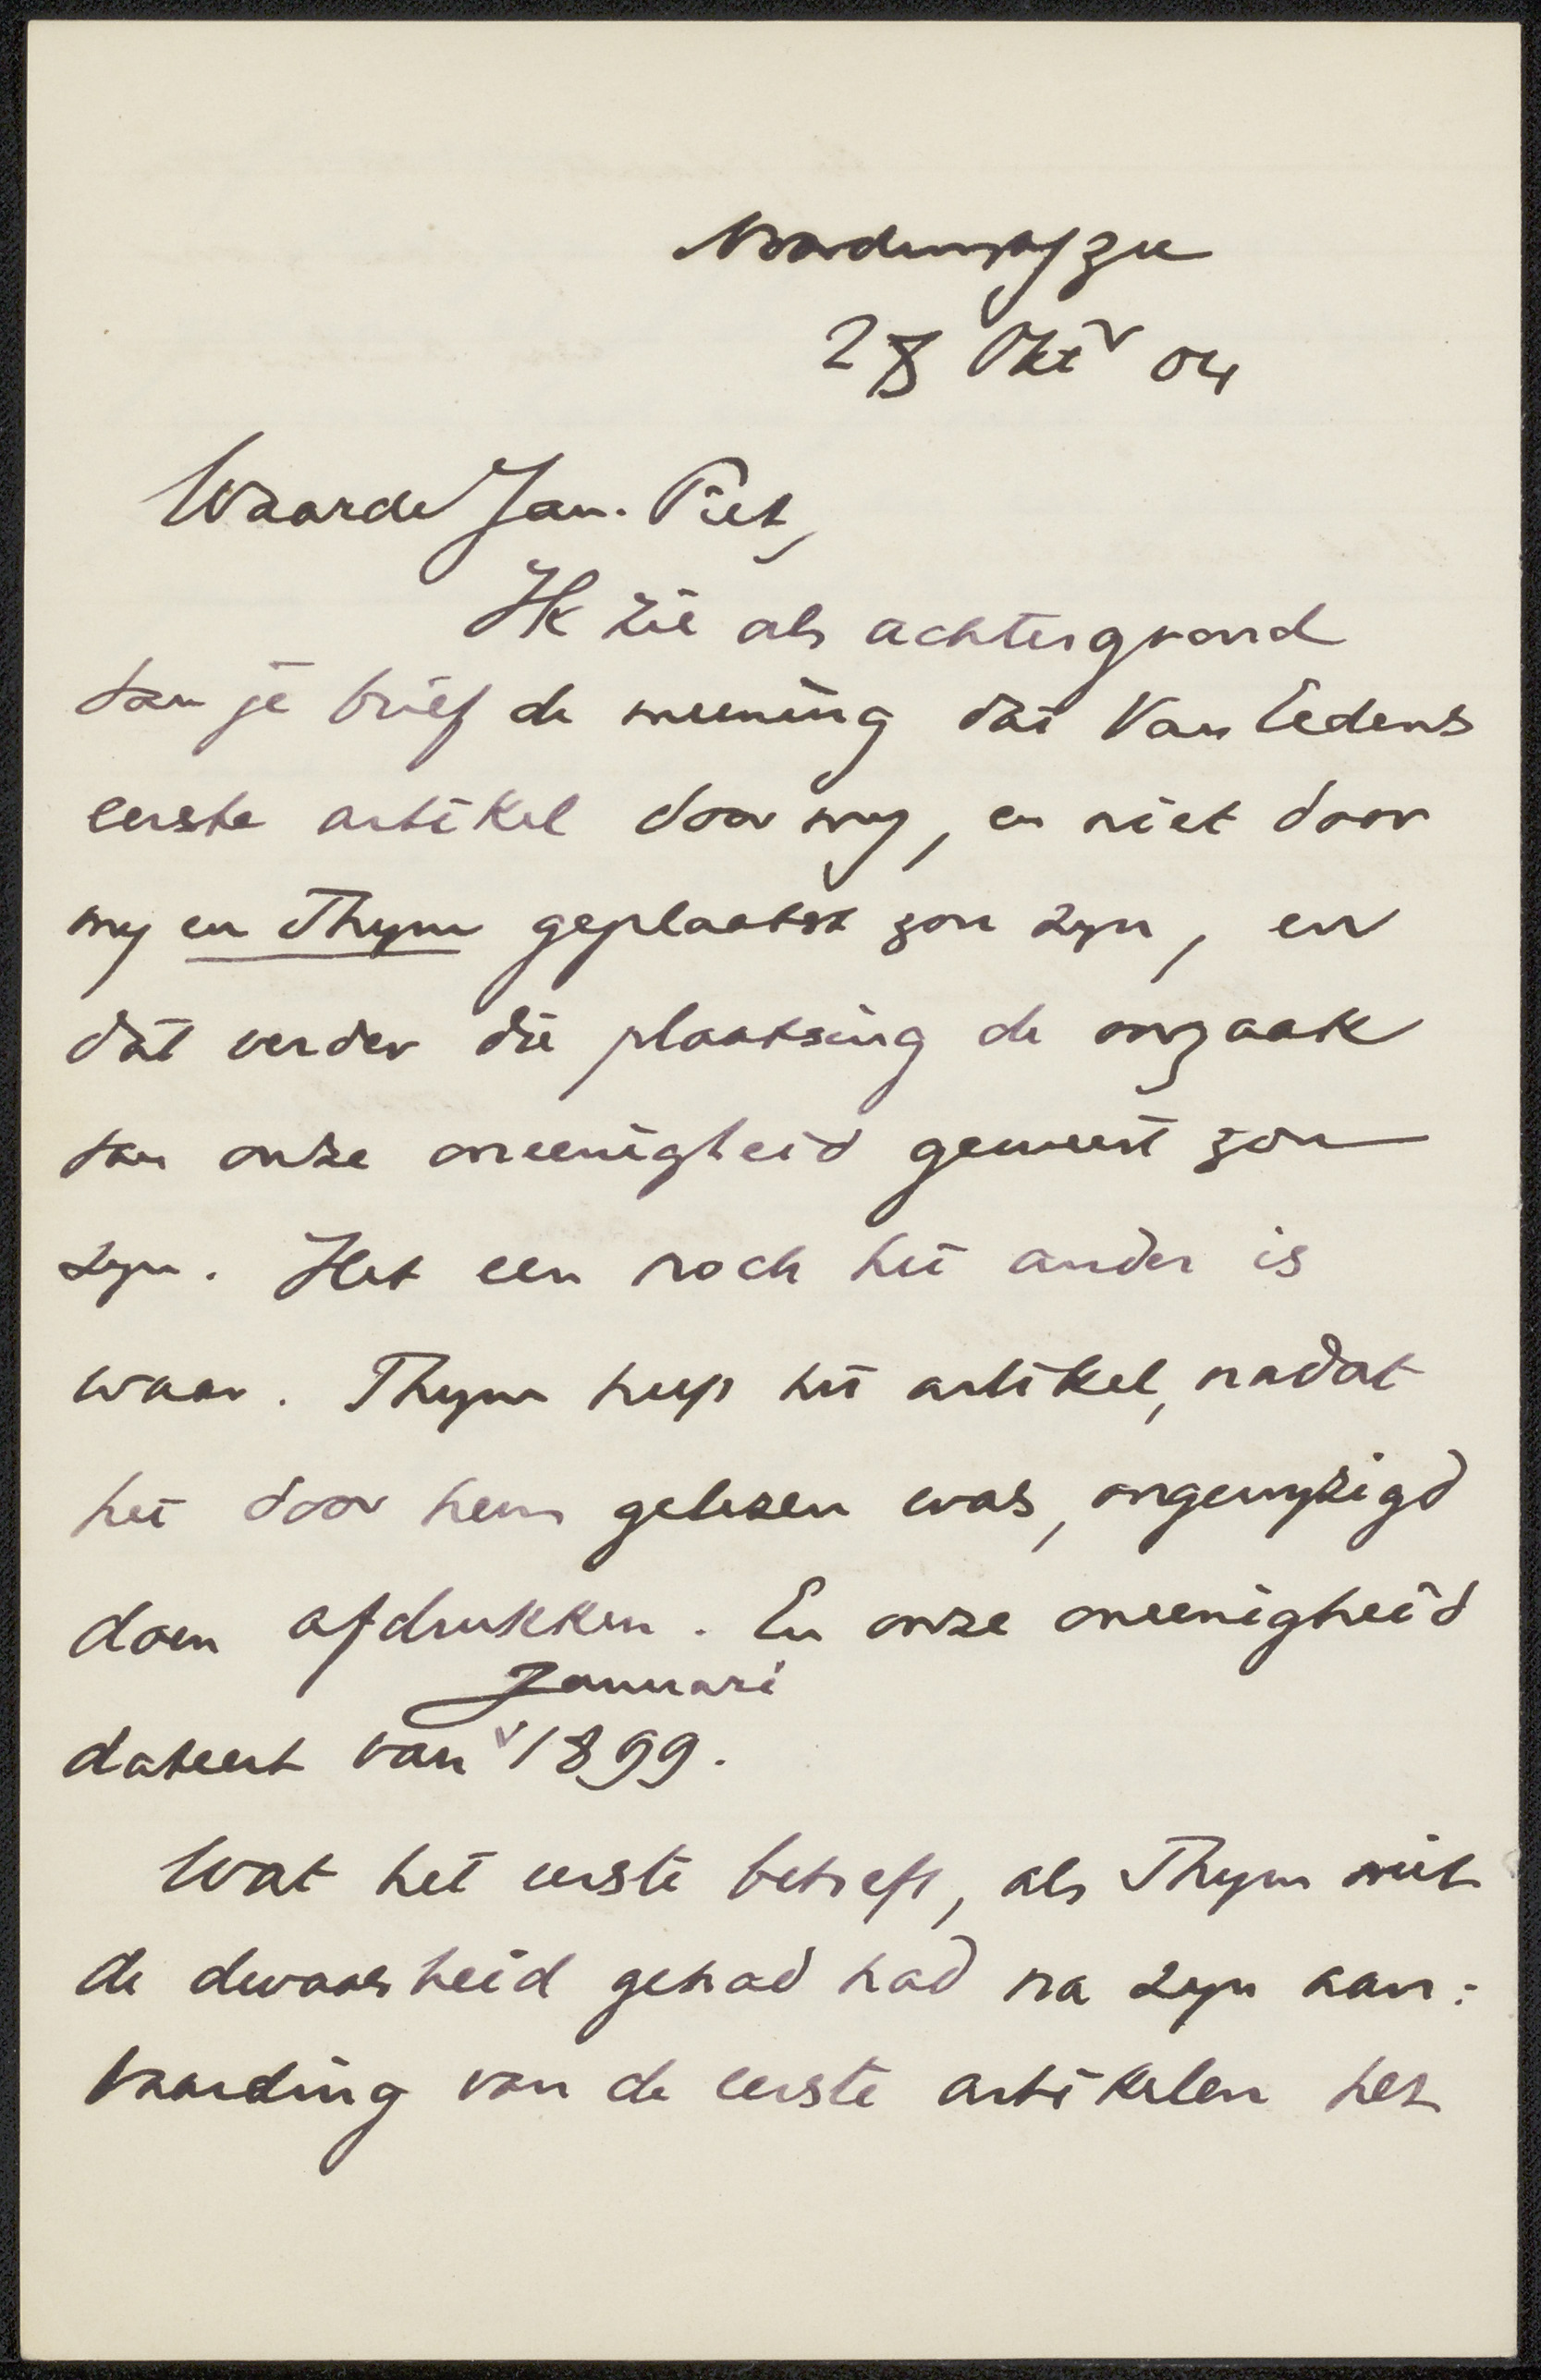 Noordwijk a/zee
28 Okt^r 04
Waarde Jan. Piet,
Ik zie als achtergrond
van je brief de meening dat Van Eedens
eerste artikel door my, en niet door
my en Thym geplaatst zou zyn, en
dat verder die plaatsing de oorzaak
van onze oneenigheid geweest zou
zyn. Het een noch het ander is
waar. Thym heeft het artikel, nadat
het door hem gelezen was, ongewyzigd
doen afdrukken. En onze oneenigheid
Januari
dateert van 1899.
Wat het eerste betreft, als Thym niet
de dwaasheid gehad had na zyn aan:
vaarding van de eerste artikelen het